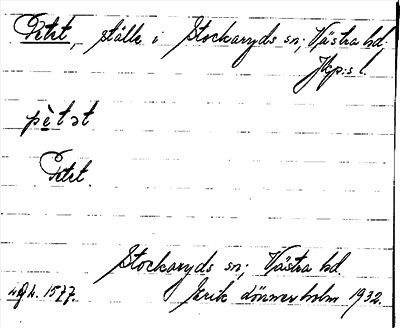 Petrt, ställe i Stockaryds sn; Västra hd.
Jkp:s l.
pètət
Petrt.
Stockaryds sn; Västra hd.
1577. Erik Lönnerholm 1932.